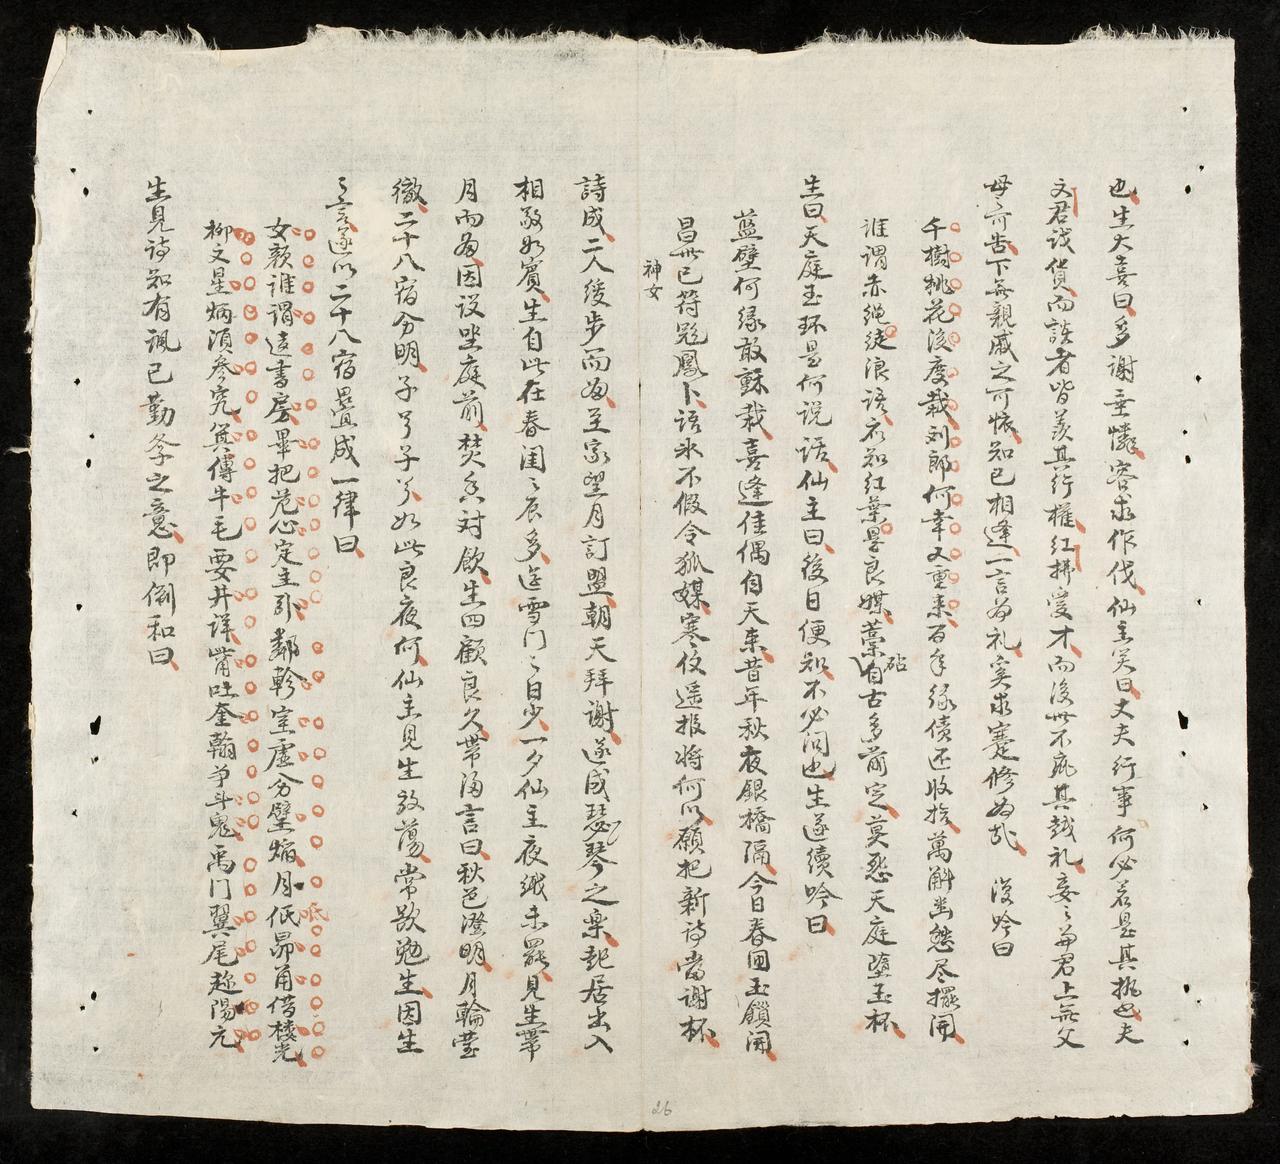 也生大喜曰多謝垂憐容求作伐仙主笑曰丈夫行事何必若是其拘也夫
文君試貨而談者皆羨其行權紅拂愛才而後世不疵其越礼妾之蒂君上無父
母可告下無親戚之可恢知已相逢一言為礼奚求蹇修為哉 復吟曰
千樹桃花後度栽刘郎何幸又重来百年缘债还收拾萬斛幽愁尽擺開
誰謂赤绳徒浪語不知紅葉是良媒藁砧自古多前定莫惹天庭墮玉杯
生曰天庭玉环是何说話仙主曰後日便知不必问也生遂續吟曰
藍璧何缘敢蘇栽喜逢佳偶自天来昔年秋夜銀橋隔今日春回玉鎖開
昌世已符题鳳卜語氷不假令狐媒寒仪遥报将何以願把新诗當谢杯
神女
詩成二人缓步而為至家望月訂盟朝天拜謝遂成瑟琴之樂起居出入
相敬如賓生自此在春闺之辰多遊雪门之日少一夕仙主夜織未罷見生帶
月而為因设坐庭前焚香对飲生四顧良久带酒言曰秋色澄明月輪莹
徹二十八宿分明子兮子兮如此良夜何仙主見生放蕩常欲勉生因生
之言遂以二十八宿疊成一律曰
女颜誰谓遠書房畢把范心定主張鄰軫室虛分壁焰月低昴角借楼光
柳文星炳須参究箕傳牛毛要井详觜吐奎翰争斗鬼禹门翼尾趂陽亢
生見诗知有諷已勤学之意即倒和曰
26